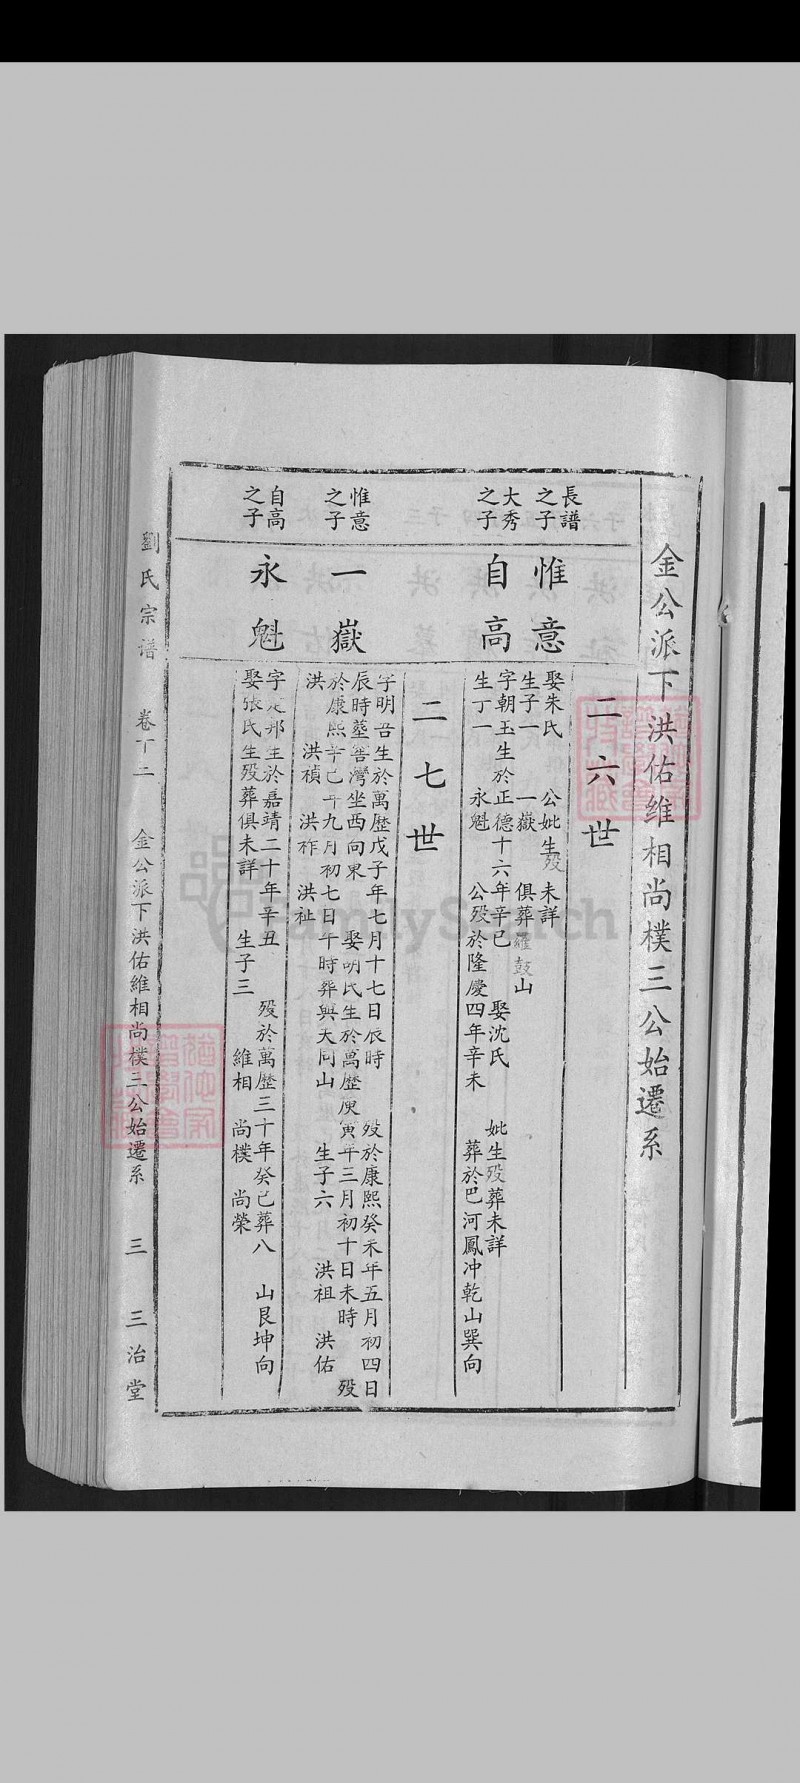 金公派下洪佑維相尚樸三公始遷系
二六世
長譜之子
惟意
娶朱氏　公妣生歿未詳
生子一　一嶽　俱葬羅鼓山
大秀之子
自高
字朝玉生於正德十六年辛巳　娶沈氏　妣生歿葬未詳
生丁一　永魁　公歿於隆慶四年辛未　葬於巴河鳳冲乾山巽向
二七世
惟意之子
一嶽
字明吾生於萬歷戊子年七月十七日辰時　歿於康熙癸未年五月初四日
辰時塟窖灣坐西向東　娶明氏生於萬歷庚寅年三月初十日未時　歿
於康熙辛巳年九月初七日午時葬與天同山　生子六　洪祖　洪佑
洪　洪禎　洪祚　洪祉
自高之子
永魁
字定邦生於嘉靖二十年辛丑　歿於萬歷三十年癸巳葬八　山艮坤向
娶張氏生歿葬俱未詳　生子三　維相　尚樸　尚榮
劉氏宗譜　卷丁二　金公派下洪佑維相尚樸三公始遷系　三　三治堂
FamilySearch